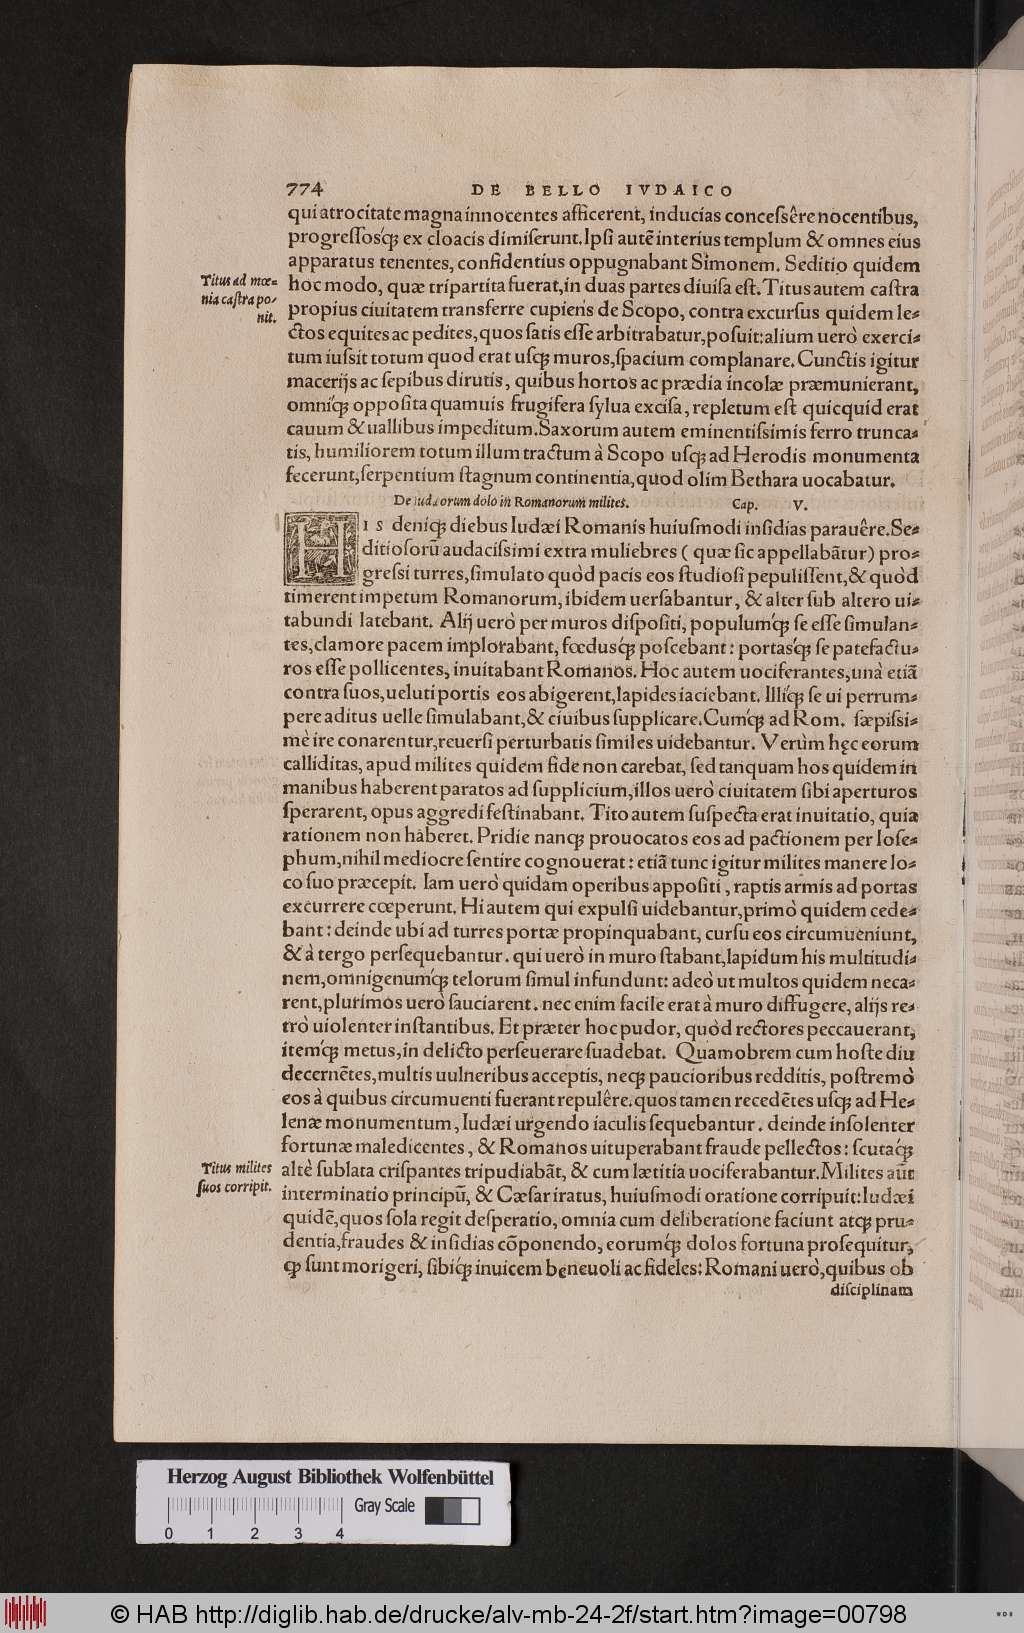 774 DE BELLO IVDAICO
qui atrocitate magna innocentes afficerent, inducias conceſsêre nocentibus,
progreſſosq́ꝫ ex cloacis dimiſerunt. Ipſi autē interius templum & omnes eius
apparatus tenentes, confidentius oppugnabant Simonem. Seditio quidem
Titus ad mœ=
nia caſtra po/
nit.
hoc modo, quæ tripartita fuerat, in duas partes diuiſa eſt. Titus autem caſtra
propius ciuitatem transferre cupiens de Scopo, contra excurſus quidem le=
ctos equites ac pedites, quos ſatis eſſe arbitrabatur, poſuit: alium uerò exerci=
tum iuſsit totum quod erat uſqꝫ muros, ſpacium complanare. Cunctis igitur
macerijs ac ſepibus dirutis, quibus hortos ac prædia incolæ præmunierant,
omniq́ꝫ oppoſita quamuis frugifera ſylua exciſa, repletum eſt quicquid erat
cauum & uallibus impeditum. Saxorum autem eminentiſsimis ferro trunca=
tis, humiliorem totum illum tractum à Scopo uſqꝫ ad Herodis monumenta
fecerunt, ſerpentium ſtagnum continentia, quod olim Bethara uocabatur.
De Iudæorum dolo in Romanorum milites. Cap. V.
HIS deniqꝫ diebus Iudæi Romanis huiuſmodi inſidias parauêre. Se=
ditioſorū audaciſsimi extra muliebres ( quæ ſic appellabātur) pro=
greſsi turres, ſimulato quòd pacis eos ſtudioſi pepuliſſent, & quòd
timerent impetum Romanorum, ibidem uerſabantur, & alter ſub altero ui=
tabundi latebant. Alij uerò per muros diſpoſiti, populumq́ꝫ ſe eſſe ſimulan=
tes, clamore pacem implorabant, fœdusq́ꝫ poſcebant: portasq́ꝫ ſe patefactu=
ros eſſe pollicentes, inuitabant Romanos. Hoc autem uociferantes, unà etiā
contra ſuos, ueluti portis eos abigerent, lapides iaciebant. Illiq́ꝫ ſe ui perrum=
pere aditus uelle ſimulabant, & ciuibus ſupplicare. Cumq́ꝫ ad Rom. ſæpiſsi=
mè ire conarentur, reuerſi perturbatis ſimiles uidebantur. Verùm hęc eorum
calliditas, apud milites quidem fide non carebat, ſed tanquam hos quidem in
manibus haberent paratos ad ſupplicium, illos uerò ciuitatem ſibi aperturos
ſperarent, opus aggredi feſtinabant. Tito autem ſuſpecta erat inuitatio, quia
rationem non haberet. Pridie nanqꝫ prouocatos eos ad pactionem per Ioſe=
phum, nihil mediocre ſentire cognouerat: etiā tunc igitur milites manere lo=
co ſuo præcepit. Iam uerò quidam operibus appoſiti, raptis armis ad portas
excurrere cœperunt. Hi autem qui expulſi uidebantur, primò quidem cede=
bant: deinde ubi ad turres portæ propinquabant, curſu eos circumueniunt,
& à tergo perſequebantur. qui uerò in muro ſtabant, lapidum his multitudi=
nem, omnigenumq́ꝫ telorum ſimul infundunt: adeò ut multos quidem neca=
rent, plurimos uerò ſauciarent. nec enim facile erat à muro diffugere, alijs re=
trò uiolenter inſtantibus. Et præter hoc pudor, quòd rectores peccauerant,
itemq́ꝫ metus, in delicto perſeuerare ſuadebat. Quamobrem cum hoſte diu
decernētes, multis uulneribus acceptis, neqꝫ paucioribus redditis, poſtremò
eos à quibus circumuenti fuerant repulêre. quos tamen recedētes uſqꝫ ad He=
lenæ monumentum, Iudæi urgendo iaculis ſequebantur. deinde inſolenter
fortunæ maledicentes, & Romanos uituperabant fraude pellectos: ſcutaq́ꝫ
Titus milites
ſuos corripit.
altè ſublata criſpantes tripudiabāt, & cum lætitia uociferabantur. Milites aūt
interminatio principū, & Cæſar iratus, huiuſmodi oratione corripuit: Iudæi
quidē, quos ſola regit deſperatio, omnia cum deliberatione faciunt atqꝫ pru=
dentia, fraudes & inſidias cōponendo, eorumq́ꝫ dolos fortuna proſequitur,
qꝫ ſunt morigeri, ſibiq́ꝫ inuicem beneuoli ac fideles: Romani uerò, quibus ob
diſciplinam
Herzog August Bibliothek Wolfenbüttel
Gray Scale
0 1 2 3 4
© HAB http://diglib.hab.de/drucke/alv-mb-24-2f/start.htm?image=00798